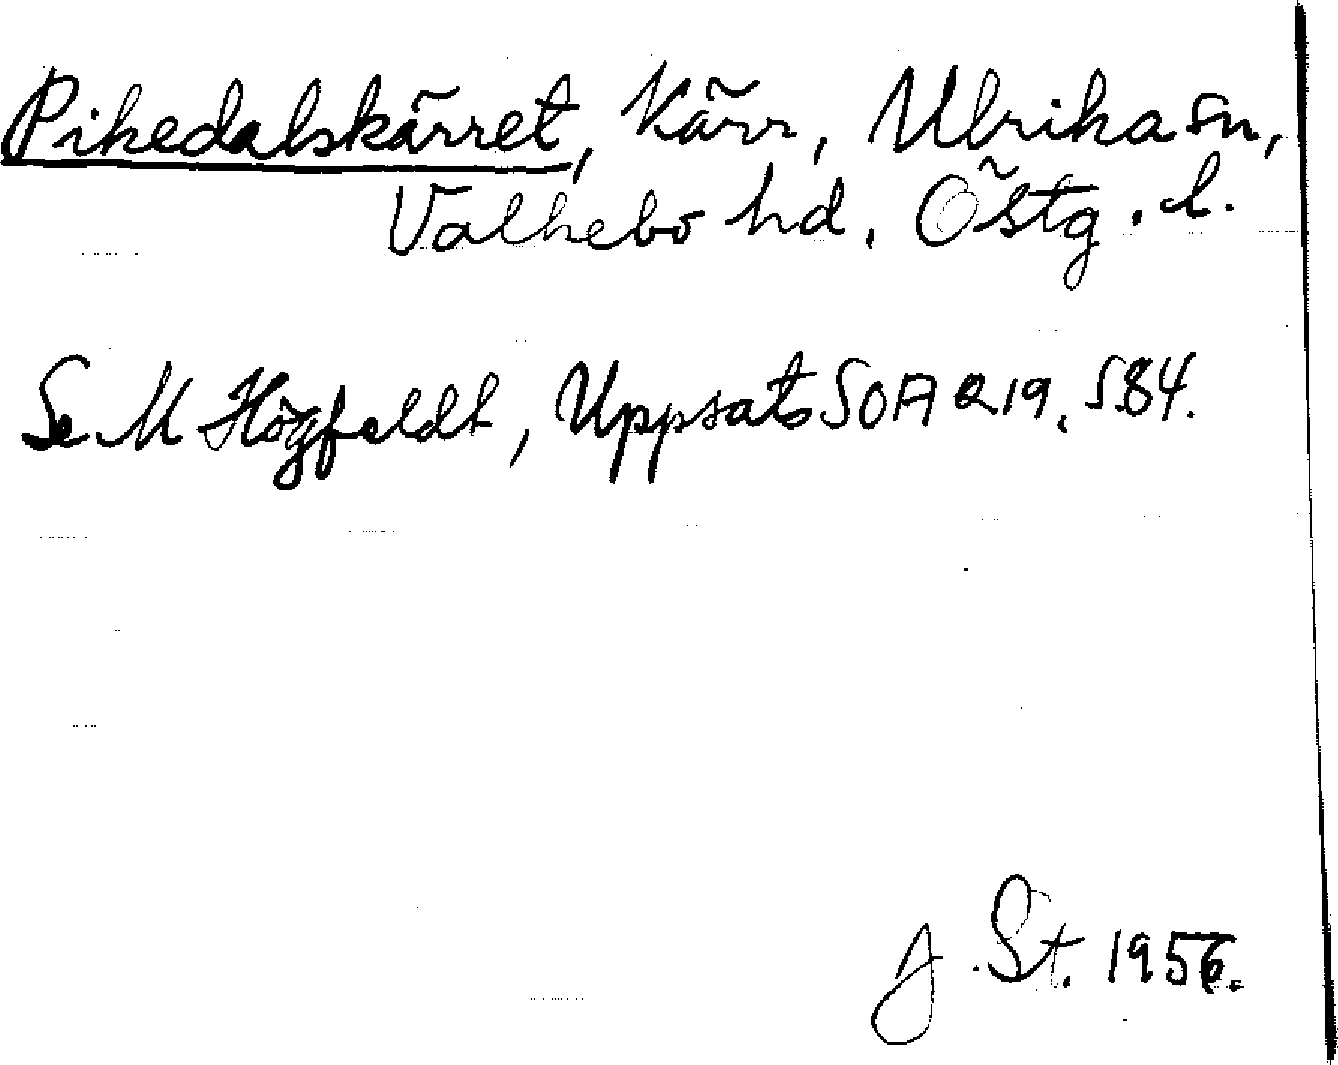 Pikedalskärret, Kärr, Ulrika sn,
Valkebo hd. Östg. l.
Se M Högfeldt, Uppsats SOA Q19. S.84.
J. St. 1956.